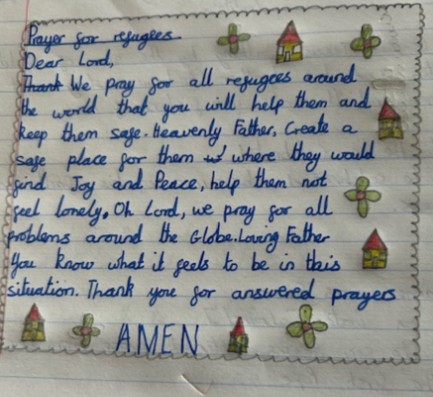 Prayer for refugees
Dear Lord,
Thank We pray for all refugees around
the world that you will help them and
keep them safe. Heavenly Father, Create a
safe place for them where they would
find Joy and Peace, help them not
feel lonely. Oh Lord, we pray for all
problems around the Globe. Loving Father
You know what it feels to be in this
situation. Thank you for answered prayers
AMEN